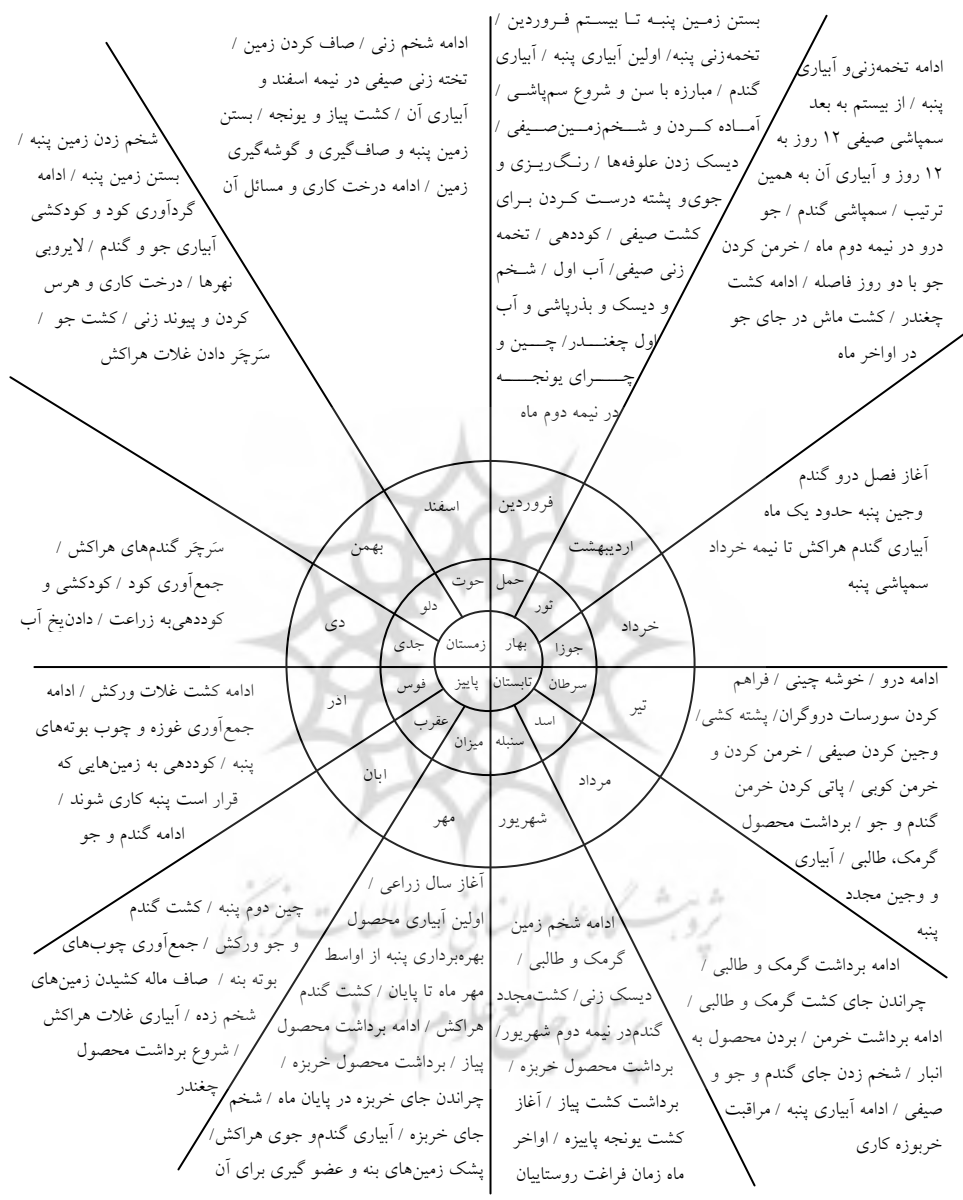 بستن زمـین پنبـه تـا بیسـتم فـروردین /
تخمه‌زنی پنبه/ اولین آبیاری پنبه / آبیاری
گندم / مبارزه با سن و شروع سم‌پاشـی /
آمـاده کـردن و شـخم‌زمـین‌صـیفی /
دیسک زدن علوفه‌ها / رنـگ‌ریـزی و
جوی‌و پشته درسـت کـردن بـرای
کشت صیفی / کوددهی / تخمه
زنی صیفی/ آب اول / شـخم
و دیسک و بذرپاشی و آب
اول چغنـدر/ چـین و
چـرای یونجـه
در نیمه دوم ماه
ادامه تخمه‌زنی‌و آبیاری
پنبه / از بیستم به بعد
سمپاشی صیفی ۱۲ روز به
۱۲ روز و آبیاری آن به همین
ترتیب / سمپاشی گندم / جو
درو در نیمه دوم ماه / خرمن کردن
جو با دو روز فاصله / ادامه کشت
چغندر / کشت ماش در جای جو
در اواخر ماه
آغاز فصل درو گندم
وجین پنبه حدود یک ماه
آبیاری گندم هراکش تا نیمه خرداد
سمپاشی پنبه
ادامه درو / خوشه چینی / فراهم
کردن سورسات دروگران/ پشته کشی/
وجین کردن صیفی / خرمن کردن و
خرمن کوبی / پاتی کردن خرمن
گندم و جو / برداشت محصول
گرمک، طالبی / آبیاری
و وجین مجدد
پنبه
ادامه برداشت گرمک و طالبی /
چراندن جای کشت گرمک و طالبی /
ادامه برداشت خرمن / بردن محصول به
انبار / شخم زدن جای گندم و جو و
صیفی / ادامه آبیاری پنبه / مراقبت
خربوزه کاری
ادامه شخم زمین
گرمک و طالبی /
دیسک زنی/ کشت‌مجدد
گندم‌در نیمه دوم شهریور/
برداشت محصول خربزه /
برداشت کشت پیاز / آغاز
کشت یونجه پاییزه / اواخر
ماه زمان فراغت روستاییان
آغاز سال زراعی /
اولین آبیاری محصول
بهره‌برداری پنبه از اواسط
مهر ماه تا پایان / کشت گندم
هراکش / ادامه برداشت محصول
پیاز / برداشت محصول خربزه /
چراندن جای خربزه در پایان ماه / شخم
جای خربزه / آبیاری گندم‌و جوی هراکش/
پشک زمین‌های بنه و عضو گیری برای آن
چین دوم پنبه / کشت گندم
و جو ورکش / جمع‌آوری چوب‌های
بوته بنه / صاف ماله کشیدن زمین‌های
شخم زده / آبیاری غلات هراکش
/ شروع برداشت محصول
چغندر
ادامه کشت غلات ورکش / ادامه
جمع‌آوری غوزه و چوب بوته‌های
پنبه / کوددهی به زمین‌هایی که
قرار است پنبه کاری شوند /
ادامه گندم و جو
سَرچَر گندم‌های هراکش /
جمع‌آوری کود / کودکشی و
کوددهی‌به زراعت / دادن‌یخ آب
شخم زدن زمین پنبه /
بستن زمین پنبه / ادامه
گردآوری کود و کودکشی
آبیاری جو و گندم / لایروبی
نهرها / درخت کاری و هرس
کردن و پیوند زنی / کشت جو /
سَرچَر دادن غلات هراکش
ادامه شخم زنی / صاف کردن زمین /
تخته زنی صیفی در نیمه اسفند و
آبیاری آن / کشت پیاز و یونجه / بستن
زمین پنبه و صاف‌گیری و گوشه‌گیری
زمین / ادامه درخت کاری و مسائل آن
فروردین
اردیبهشت
خرداد
تیر
مرداد
شهریور
مهر
ابان
ادر
دی
بهمن
اسفند
حمل
تور
جوزا
سرطان
اسد
سنبله
میزان
عقرب
قوس
جدی
دلو
حوت
بهار
تابستان
پاییز
زمستان
پژوهشگاه علوم انسانی و مطالعات فرهنگی
پرتال جامع علوم انسانی